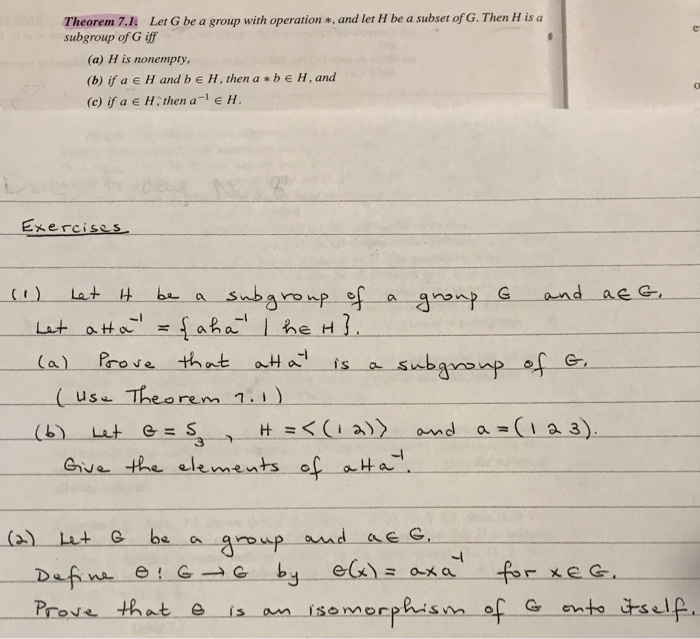 Theorem 7.1. Let G be a group with operation *, and let H be a subset of G. Then H is a
subgroup of G iff
(a) H is nonempty,
(b) if a ∈ H and b ∈ H, then a * b ∈ H, and
(c) if a ∈ H, then a⁻¹ ∈ H.
Exercises
(1) Let H be a subgroup of a group G and a∈G.
Let aHa⁻¹ = {aha⁻¹ | h∈H}.
(a) Prove that aHa⁻¹ is a subgroup of G.
(Use Theorem 7.1)
(b) Let G = S₃, H = <(1 2)> and a = (1 2 3).
Give the elements of aHa⁻¹.
(2) Let G be a group and a∈G.
Define θ: G → G by θ(x) = axa⁻¹ for x∈G.
Prove that θ is an isomorphism of G onto itself.